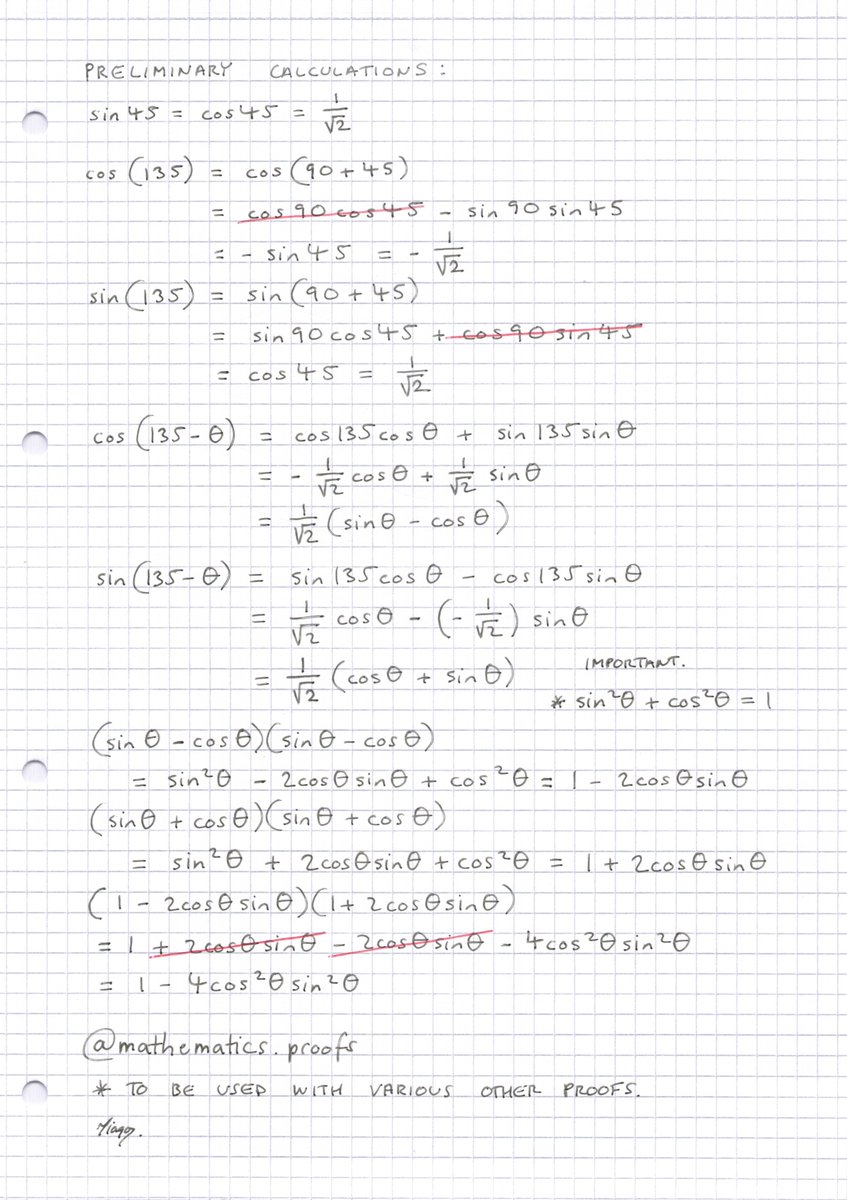 PRELIMINARY CALCULATIONS:
sin 45 = cos 45 = 1/√2
cos (135) = cos (90 + 45)
= cos 90 cos 45 - sin 90 sin 45
= - sin 45 = - 1/√2
sin (135) = sin (90 + 45)
= sin 90 cos 45 + cos 90 sin 45
= cos 45 = 1/√2
cos (135 - θ) = cos 135 cos θ + sin 135 sin θ
= - 1/√2 cos θ + 1/√2 sin θ
= 1/√2 (sin θ - cos θ)
sin (135 - θ) = sin 135 cos θ - cos 135 sin θ
= 1/√2 cos θ - (- 1/√2) sin θ
= 1/√2 (cos θ + sin θ)
IMPORTANT.
* sin²θ + cos²θ = 1
(sin θ - cos θ)(sin θ - cos θ)
= sin²θ - 2cos θ sin θ + cos²θ = 1 - 2cos θ sin θ
(sin θ + cos θ)(sin θ + cos θ)
= sin²θ + 2cos θ sin θ + cos²θ = 1 + 2cos θ sin θ
(1 - 2cos θ sin θ)(1 + 2cos θ sin θ)
= 1 + 2cos θ sin θ - 2cos θ sin θ - 4cos²θ sin²θ
= 1 - 4cos²θ sin²θ
@mathematics.proofs
* TO BE USED WITH VARIOUS OTHER PROOFS.